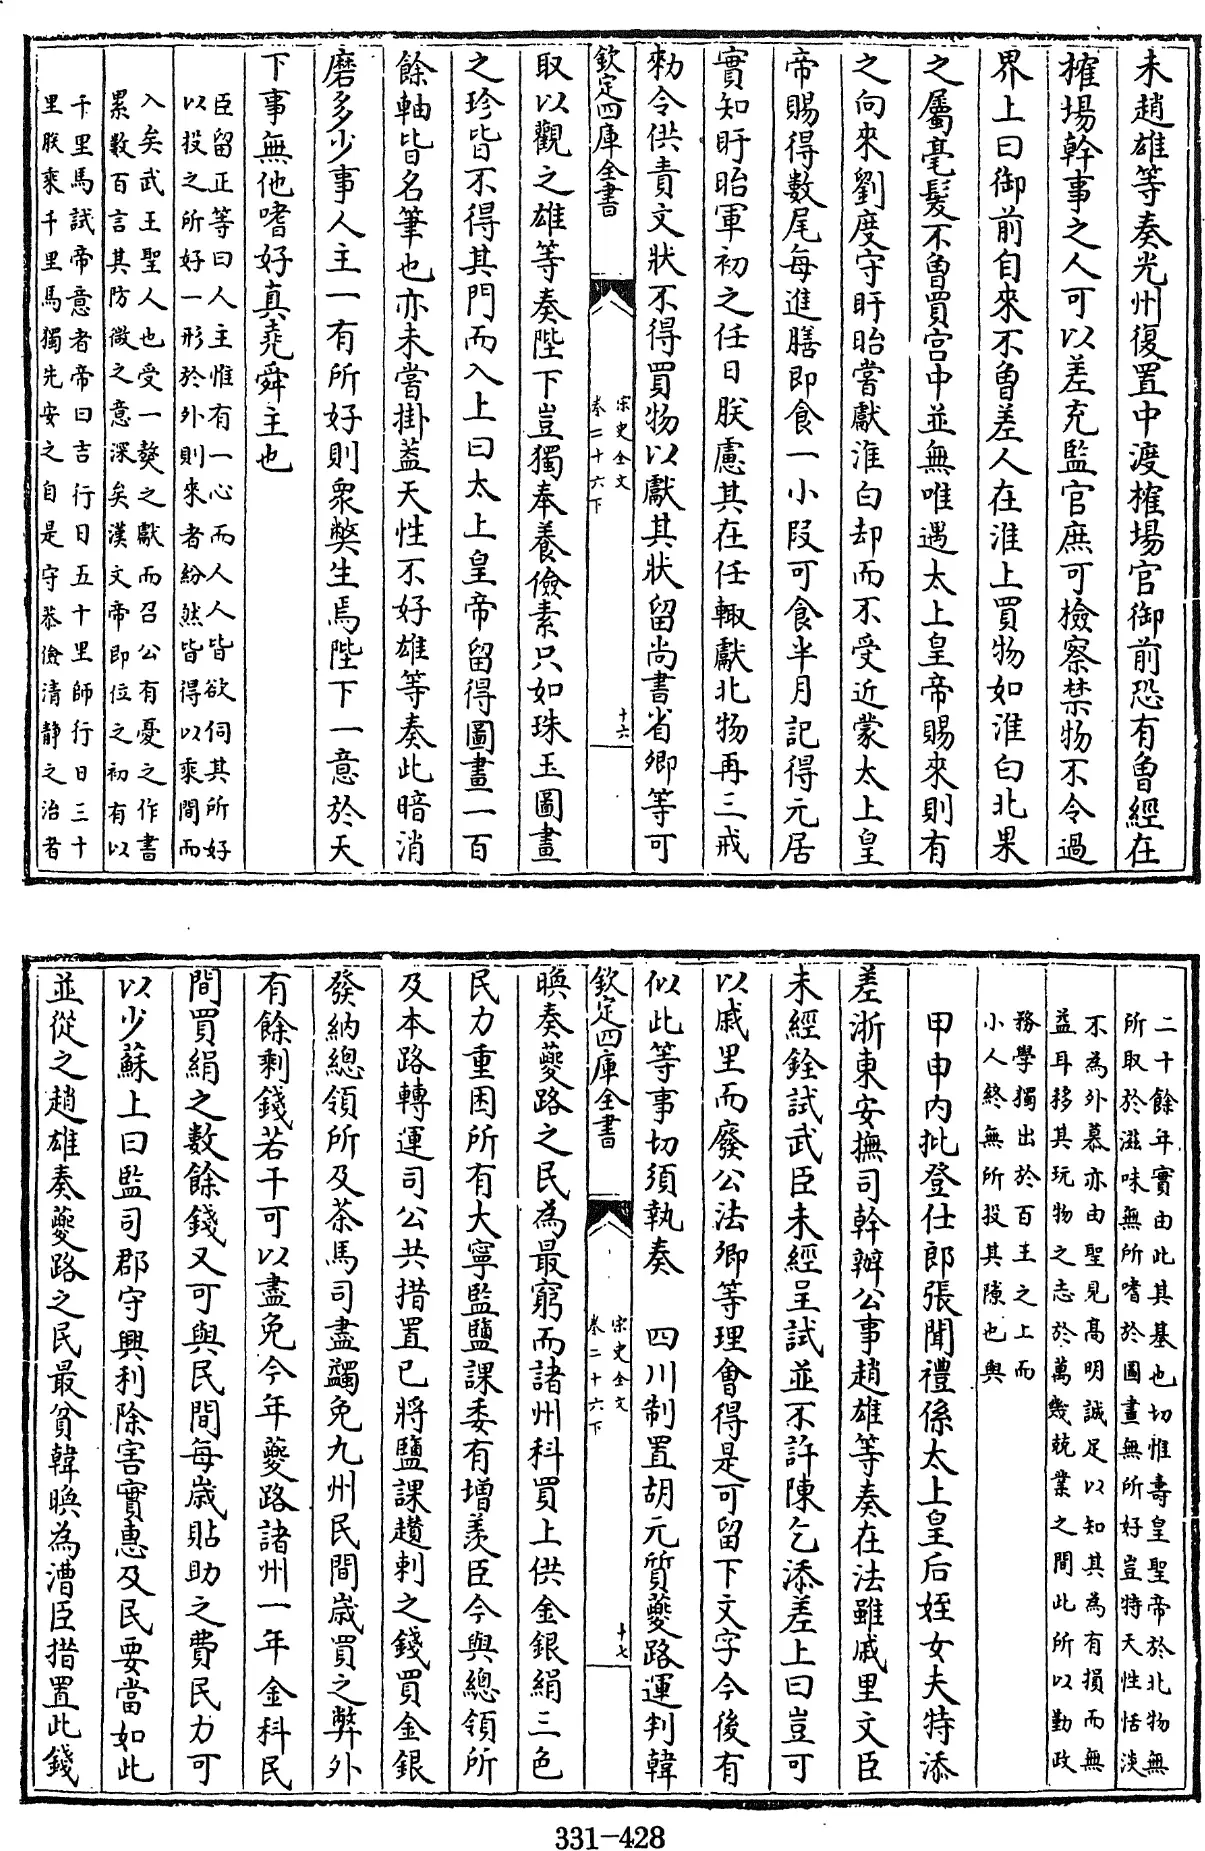 未趙雄等奏光州復置中渡榷場官御前恐有曾經在
榷場幹事之人可以差充監官庶可檢察禁物不令過
界上曰御前自來不曾差人在淮上買物如淮白北果
之屬毫髮不曾買宫中並無唯遇太上皇帝賜來則有
之向來劉度守盱眙嘗獻淮白却而不受近蒙太上皇
帝賜得數尾每進膳即食一小段可食半月記得元居
實知盱眙軍初之任日朕慮其在任輙獻北物再三戒
勑令供責文狀不得買物以獻其狀留尚書省卿等可
欽定四庫全書
宋史全文
卷二十六下
十六
取以觀之雄等奏陛下豈獨奉養儉素只如珠玉圖畫
之珍皆不得其門而入上曰太上皇帝留得圖畫一百
餘軸皆名筆也亦未嘗掛葢天性不好雄等奏此暗消
磨多少事人主一有所好則衆弊生焉陛下一意於天
下事無他嗜好真堯舜主也
臣留正等曰人主惟有一心而人人皆欲伺其所好
以投之所好一形於外則來者紛然皆得以乘間而
入矣武王聖人也受一獒之獻而召公有憂之作書
累數百言其防微之意深矣漢文帝即位之初有以
千里馬試帝意者帝曰吉行日五十里師行日三十
里朕乘千里馬獨先安之自是守恭儉清静之治者
二十餘年實由此其基也切惟壽皇聖帝於北物無
所取於滋味無所嗜於圖畫無所好豈特天性恬淡
不為外慕亦由聖見高明誠足以知其為有損而無
益耳移其玩物之志於萬幾兢業之間此所以勤政
務學獨出於百王之上而
小人終無所投其隙也與
甲申内批登仕郎張聞禮係太上皇后姪女夫特添
差浙東安撫司幹辦公事趙雄等奏在法雖戚里文臣
未經銓試武臣未經呈試並不許陳乞添差上曰豈可
以戚里而廢公法卿等理會得是可留下文字今後有
似此等事切須執奏　四川制置胡元質夔路運判韓
欽定四庫全書
宋史全文
卷二十六下
十七
㬇奏夔路之民為最窮而諸州科買上供金銀絹三色
民力重困所有大寧監鹽課委有增羨臣今與總領所
及本路轉運司公共措置已將鹽課趲剩之錢買金銀
發納總領所及茶馬司盡蠲免九州民間歲買之弊外
有餘剩錢若干可以盡免今年夔路諸州一年金科民
間買絹之數餘錢又可與民間每歲貼助之費民力可
以少蘇上曰監司郡守興利除害實惠及民要當如此
並從之趙雄奏夔路之民最貧韓㬇為漕臣措置此錢
331-428